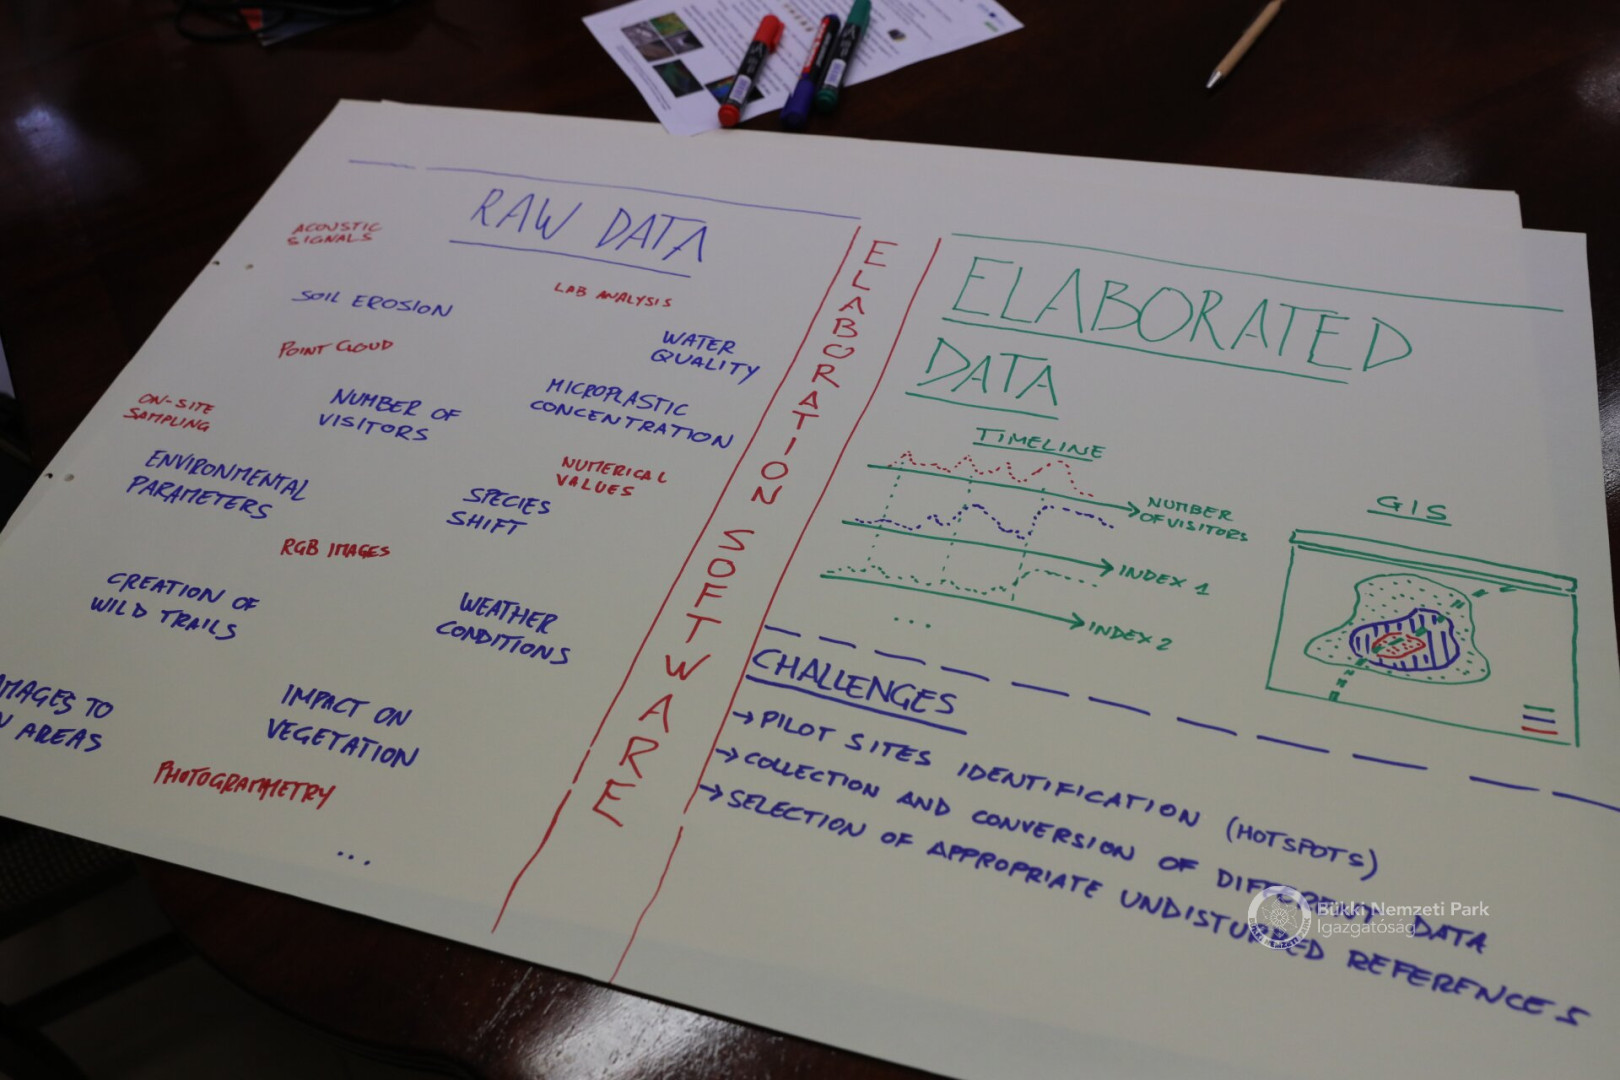 RAW DATA
ACOUSTIC
SIGNALS
LAB ANALYSIS
SOIL EROSION
WATER
QUALITY
POINT CLOUD
MICROPLASTIC
CONCENTRATION
ON-SITE
SAMPLING
NUMBER OF
VISITORS
NUMERICAL
VALUES
ENVIRONMENTAL
PARAMETERS
SPECIES
SHIFT
RGB IMAGES
CREATION OF
WILD TRAILS
WEATHER
CONDITIONS
TO
AREAS
IMPACT ON
VEGETATION
PHOTOGRAMMETRY
...
ELABORATION SOFTWARE
ELABORATED
DATA
TIMELINE
NUMBER
OF VISITORS
INDEX 1
INDEX 2
...
GIS
CHALLENGES
→ PILOT SITES IDENTIFICATION (HOTSPOTS)
→ COLLECTION AND CONVERSION OF DIFFERENT DATA
→ SELECTION OF APPROPRIATE UNDISTURBED REFERENCES
Bükki Nemzeti Park
Igazgatóság